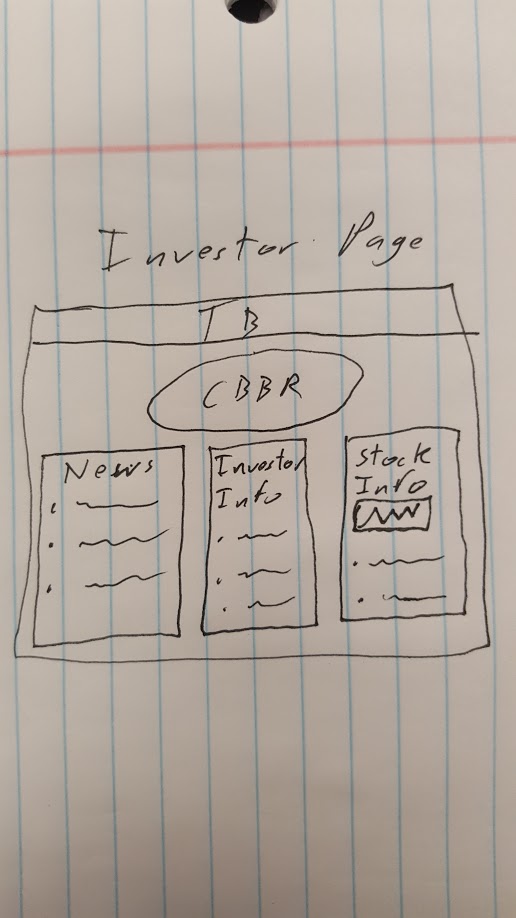 Investor Page
TB
CBBR
News
Investor
Info
Stock
Info